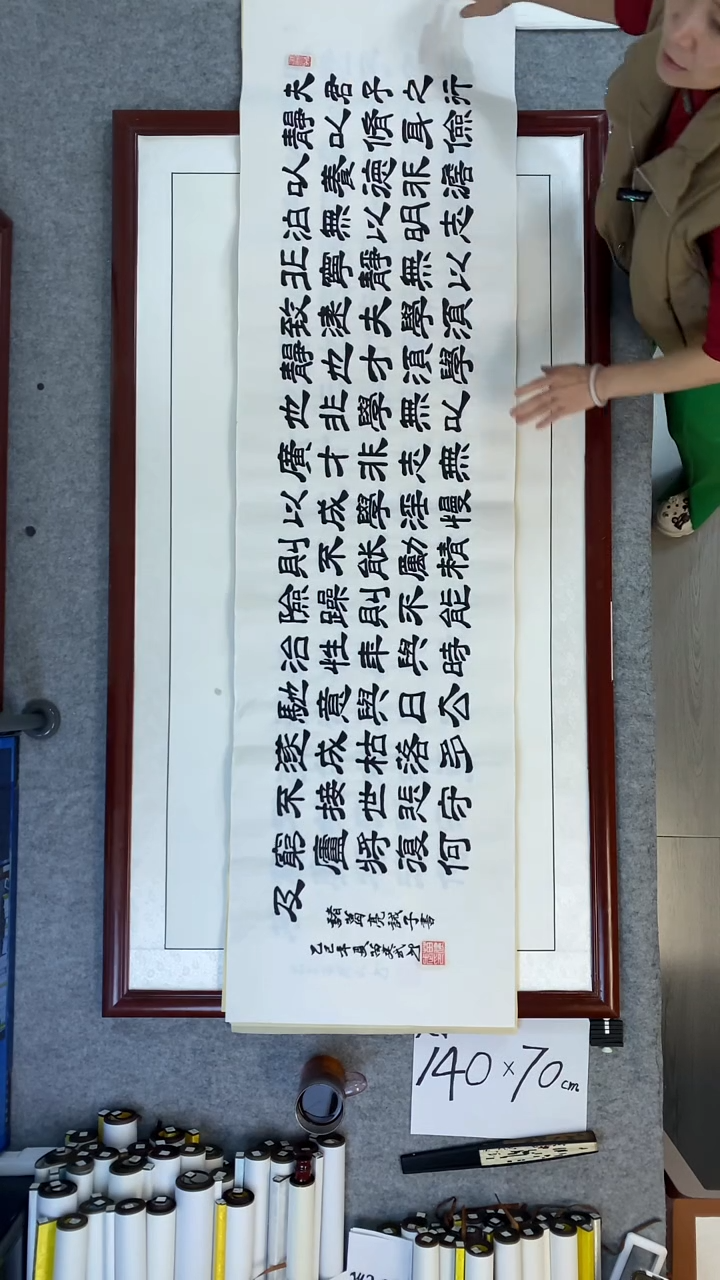 夫君子之行
靜以脩身儉
以養德非澹
泊無以明志
非寧靜無以
致遠夫學須
靜也才須學
也非學無以
廣才非志無
以成學淫慢
則不能勵精
險躁則不能
治性年與時
馳意與日去
遂成枯落多
不接世悲守
窮廬將復何
及
諸葛亮誡子書
乙巳年夏
140×70cm